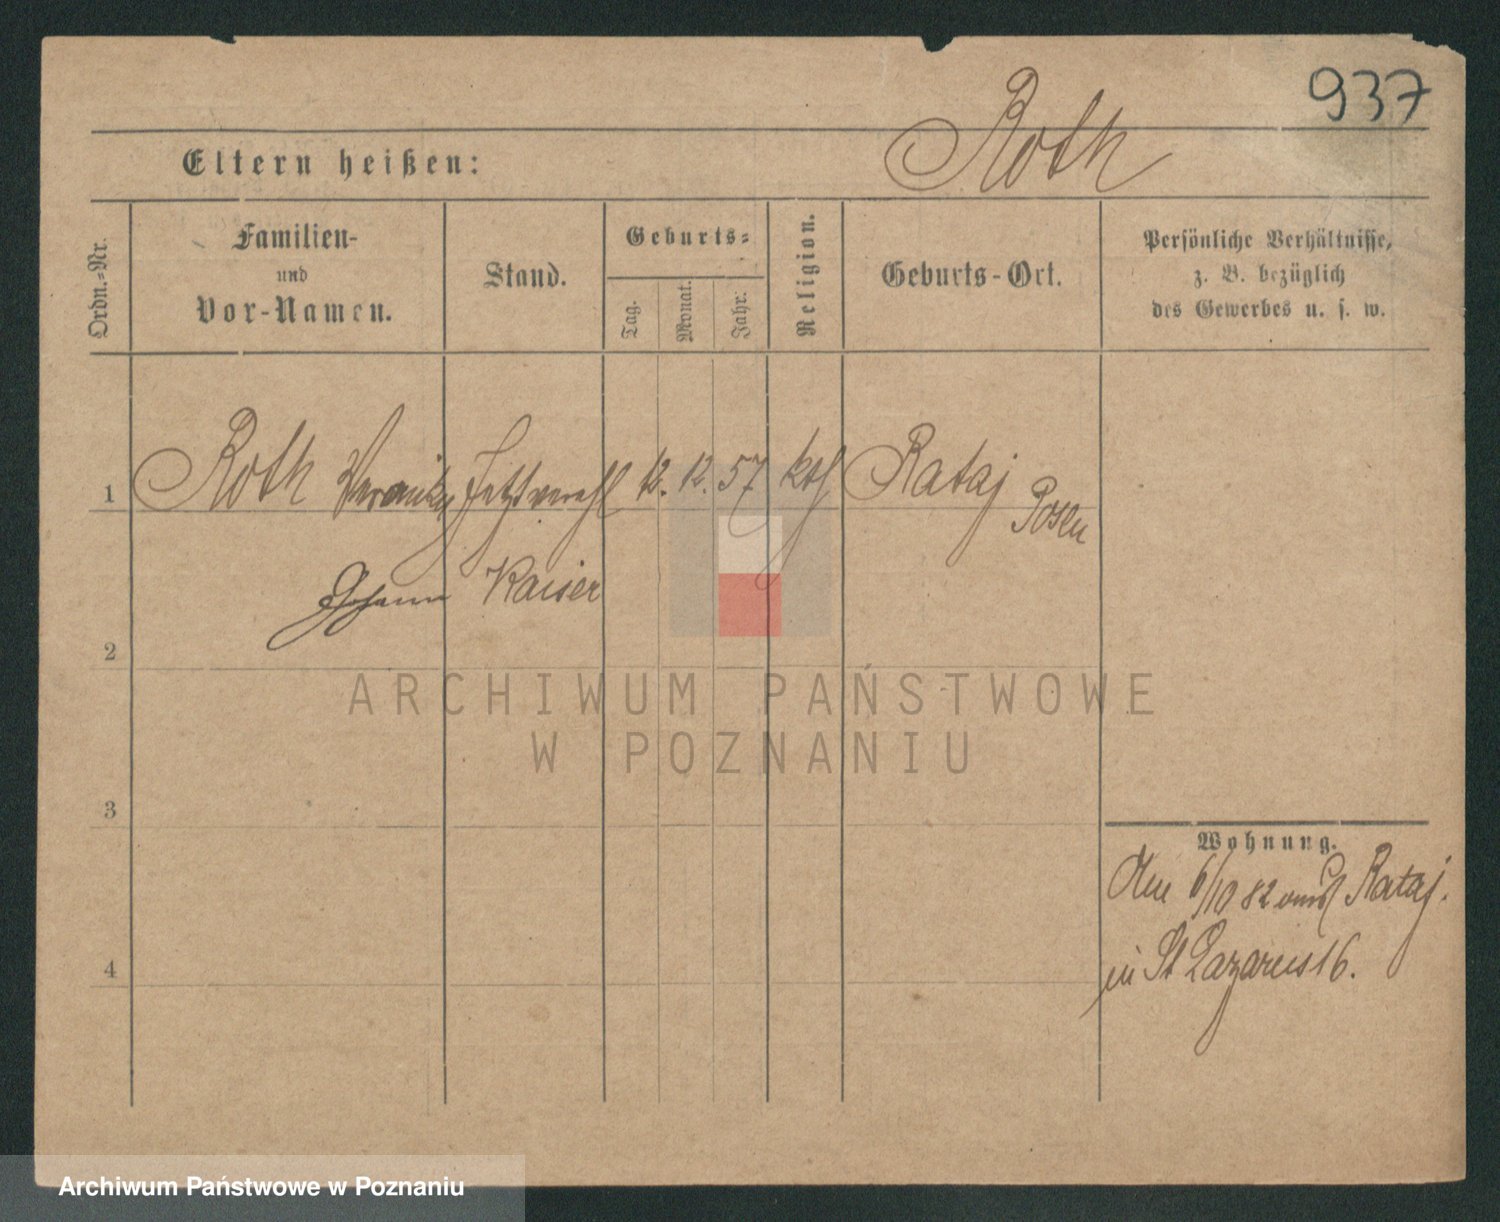 937
Roth
Eltern heißen:
Ordn.-Nr.
Familien-
und
Vor-Namen.
Stand.
Geburts-
Tag.
Monat.
Jahr.
Religion.
Geburts-Ort.
Persönliche Verhältnisse,
z. B. bezüglich
des Gewerbes u. s. w.
1 Roth Veronika Jetzt verehl 12. 12. 57 kth Rataj Posen
Johann Kaiser
2
3
4
Wohnung.
6/10 82 Rataj.
in St Lazarus 16.
ARCHIWUM PAŃSTWOWE
W POZNANIU
Archiwum Państwowe w Poznaniu